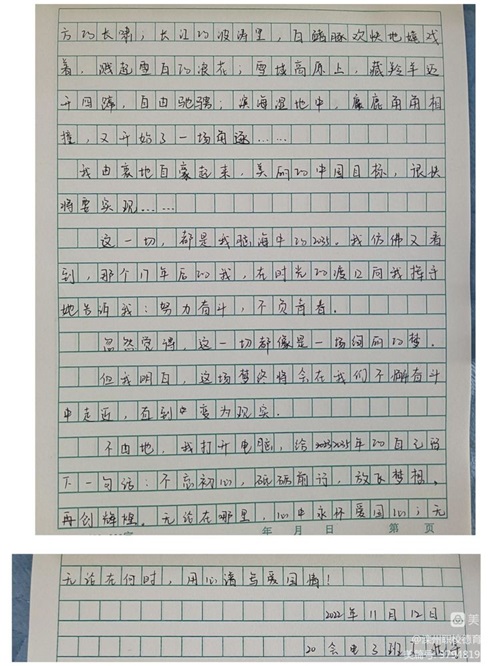 方的长满；长江的波涛里，白鳍豚欢快地嬉戏
着，溅起雪白的浪花；雪域高原上，藏羚羊迈
开四蹄，自由驰骋；滨海湿地中，麋鹿角角相
撞，又开始了一场角逐……
我由衷地自豪起来，美丽的中国目标，很快
将要实现……
这一切，都是我脑海中的2035。我仿佛又看
到，那个17年后的我，在时光的渡口向我挥手
地告诉我：努力奋斗，不负青春。
忽然觉得，这一切都像是一场绚丽的梦。
但我明白，这场梦终将会在我们不懈奋斗
中走近，直到中变为现实。
不由地，我打开电脑，给2035年的自己写
下一句话：不忘初心，砥砺前行，放飞梦想。
再创辉煌。无论在哪里，心中永怀爱国心；无
年 月 日 第 页
无论在何时，用心满与爱国情！
2022年11月12日
20会电3班
美篇号: